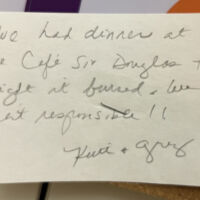 had dinner at
Café Sir Douglas
it burned. We
responsible!!
Kuti + Greg